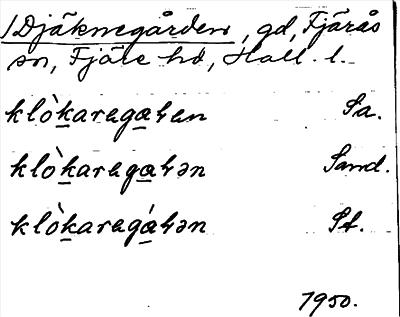 /Djäknegården, gd, Fjärås
sn, Fjäre hd, Hall. l.
klòkaregaꞔen Sa.
klòkaregaꞔən Sand.
klòkaregáꞔən St.
1950.